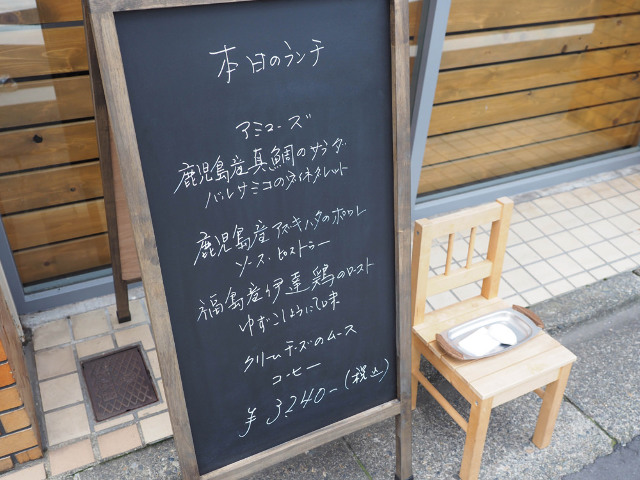 本日のランチ
アミューズ
鹿児島産真鯛のサラダ
バルサミコのヴィネグレット
鹿児島産アズキハタのポワレ
ソース・ピストゥー
福島産伊達鶏のロースト
ゆずこしょう
クリームチーズのムース
コーヒー
¥3,240-(税込)